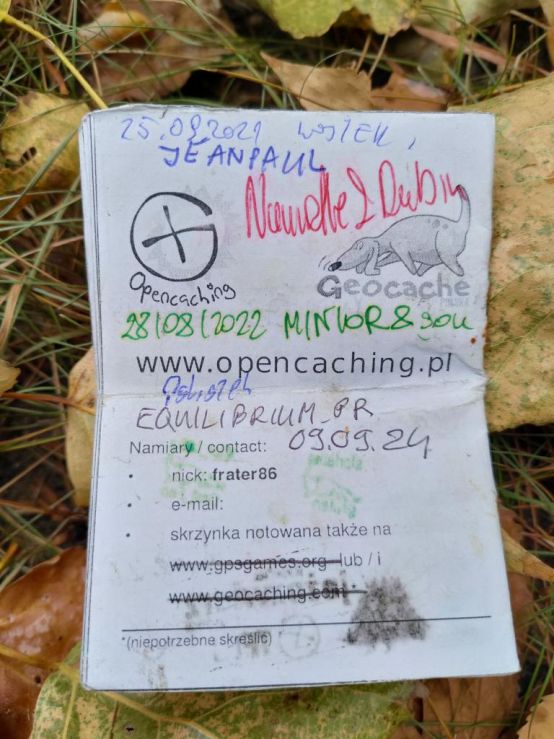 25.09.2021 WOJTEK,
JEANPAUL
Opencaching
Geocache
28/08/2022 MINIOR & SOU
www.opencaching.pl
EQUILIBRIUM_PR
Namiary / contact: 09.09.24
• nick: frater86
• e-mail:
• skrzynka notowana także na
www.gpsgames.org lub / i
www.geocaching.com *
*(niepotrzebne skreślić)